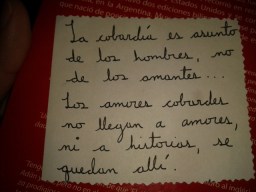 La cobardía es asunto
de los hombres, no
de los amantes...
Los amores cobardes
no llegan a amores,
ni a historias, se
quedan allí.